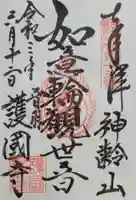 奉拝 神齢山
如意輪観世音
護國寺
令和三年
二月十一日